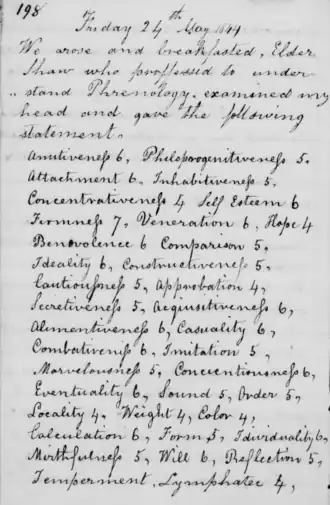 198
Friday 24th May 1844
We arose and breakfasted, Elder
Shaw who proffessed to under
stand Phrenology. examined my
head and gave the following
statement.
Amitiveness 6, Philoprogenitiveness 5.
Attachment 6, Inhabitiveness 5,
Concentrativeness 4 Self Esteem 6
Firmness 7, Veneration 6, Hope 4
Benovolence 6 Comparison 5,
Ideality 6, Constructiveness 5,
Cautiousness 5, Approbation 4,
Secretiveness 5, Acquisitiveness 6,
Alimentiveness 6, Casuality 6,
Combativeniss 6, Imitation 5,
Marvelousness 5, Concientiousness 6,
Eventuality 6, Sound 5, Order 5,
Locality 4, Weight 4, Color 4,
Calculation 6, Form 5, Idividuality 6,
Mirthfulness 5, Will 6, Reflection 5,
Temperment, Lymphatec 4,